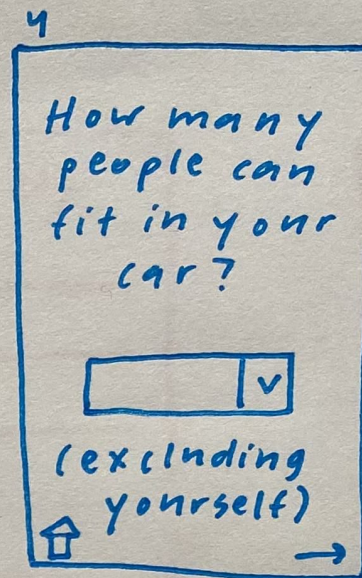 4
How many
people can
fit in your
car?
(excluding
yourself)